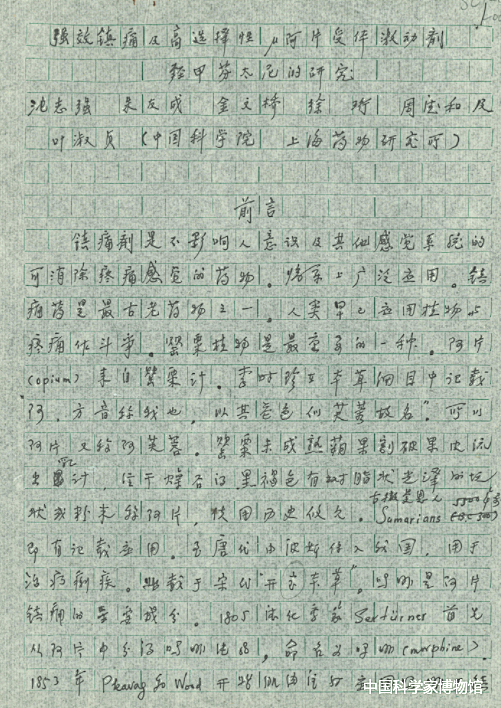 强效镇痛及高选择性μ阿片受体激动剂
羟甲芬太尼的研究
池志强 朱友成 金文桥 徐珩 周宝和及
叶淑贞（中国科学院 上海药物研究所）
前言
镇痛剂是不影响人意识及其他感觉系统的
可消除疼痛感觉的药物。临床上广泛应用。镇
痛药是最古老药物之一。人类早已应用植物与
疼痛作斗争。罂粟植物是最重要的一种。阿片
(opium) 来自罂粟汁。李时珍在本草纲目中记载
阿，方音称我也，以其花色似芙蓉故名”。所以
阿片又称阿芙蓉。罂粟未成熟蒴果割破果皮流
出乳汁，干燥 黑褐色有 脂状光泽的
状或粉末称阿片，使用历史悠久。Sumarians
即有记载应用。至唐代由波斯传入我国，用于
治疗痢疾。载于宋代“开宝本草”。吗啡是阿片
镇痛的主要成分。1805 法化学家 Sertürner 首先
从阿片中分得吗啡 ，命名为吗啡 (morphine)。
1853年 Pravag 和 Wood 开始
中国科学家博物馆